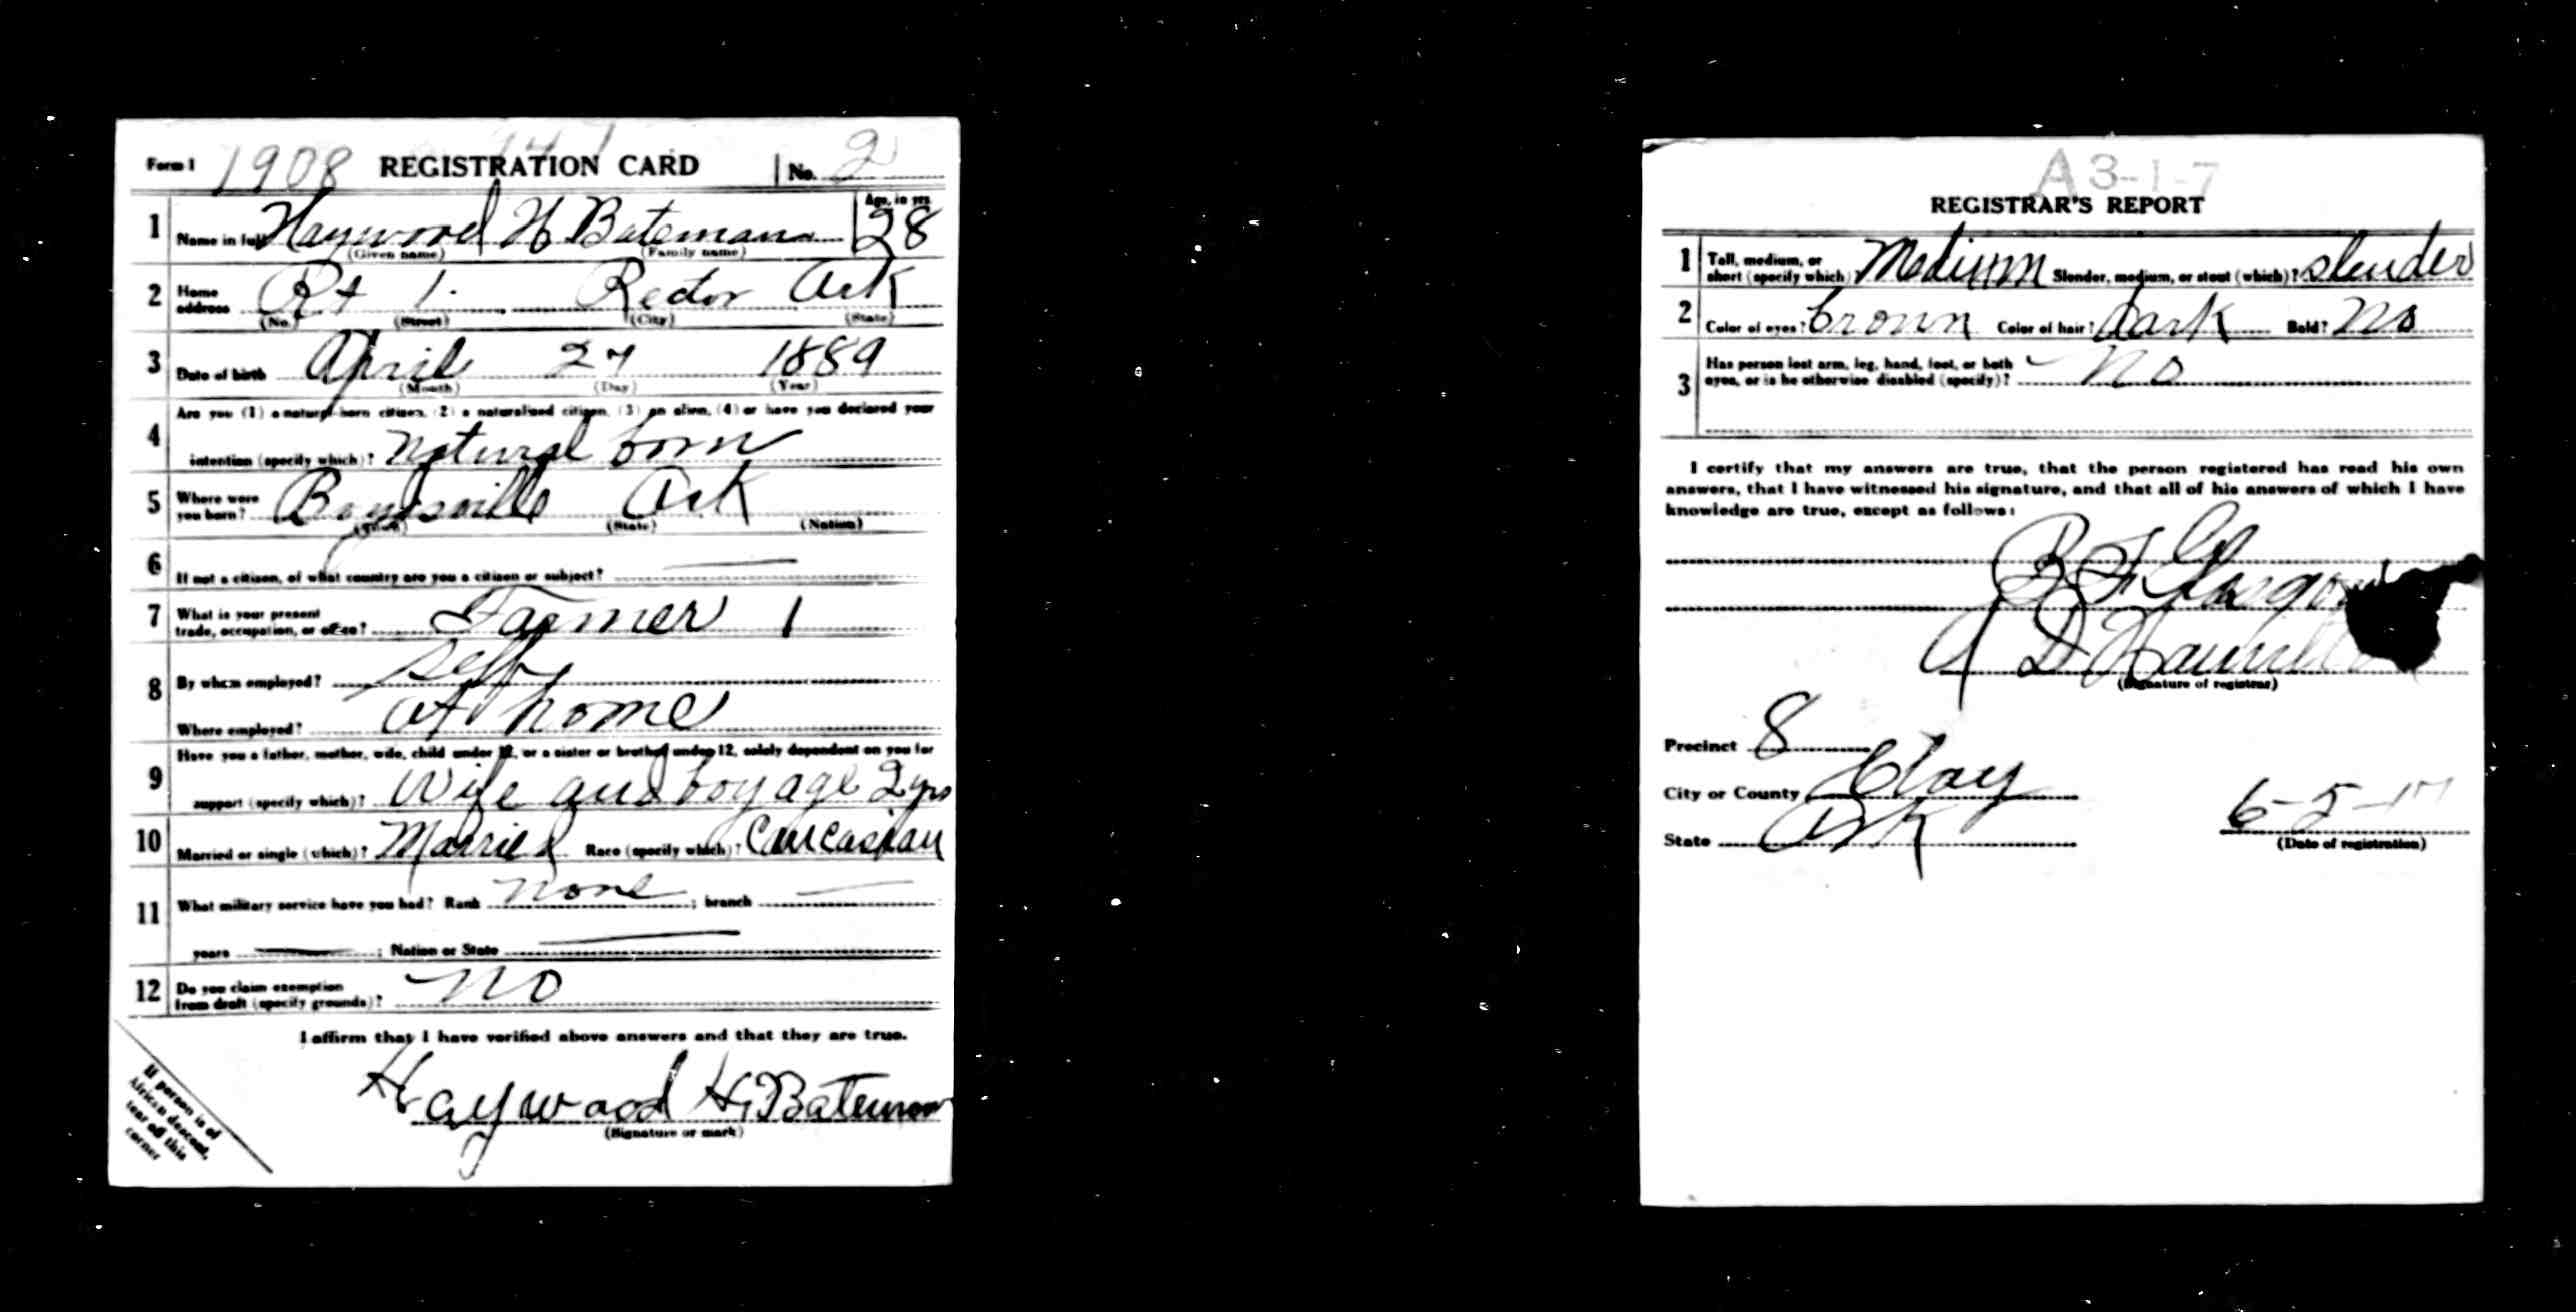 Form 1 1908 REGISTRATION CARD No. 2
1 Name in full Haywood H Bateman Age, in yrs 28
(Given name) (Family name)
2 Home address Rt 1. Rector Ark
(No.) (Street) (City) (State)
3 Date of birth April 27 1889
(Month) (Day) (Year)
Are you (1) a natural-born citizen, (2) a naturalized citizen, (3) an alien, (4) or have you declared your
4 intention (specify which)? natural born
5 Where were you born? Boydsville Ark
(Town) (State) (Nation)
6 If not a citizen, of what country are you a citizen or subject?
7 What is your present trade, occupation, or office? Farmer 1
8 By whom employed? Self
Where employed? at home
Have you a father, mother, wife, child under 12, or a sister or brother under 12, solely dependent on you for
9 support (specify which)? Wife and boy age 2 yrs
10 Married or single (which)? Married Race (specify which)? Caucasian
11 What military service have you had? Rank none ; branch
years ; Nation or State
12 Do you claim exemption from draft (specify grounds)? no
I affirm that I have verified above answers and that they are true.
Haywood H. Bateman
(Signature or mark)
If person is of
African descent,
tear off this
corner
A3-1-7
REGISTRAR'S REPORT
1 Tall, medium, or short (specify which)? Medium Slender, medium, or stout (which)? slender
2 Color of eyes? brown Color of hair? dark Bald? no
3 Has person lost arm, leg, hand, foot, or both eyes, or is he otherwise disabled (specify)? no
I certify that my answers are true, that the person registered has read his own
answers, that I have witnessed his signature, and that all of his answers of which I have
knowledge are true, except as follows:
B F
D
(Signature of registrar)
Precinct 8
City or County Clay
State Ark
6-5-17
(Date of registration)